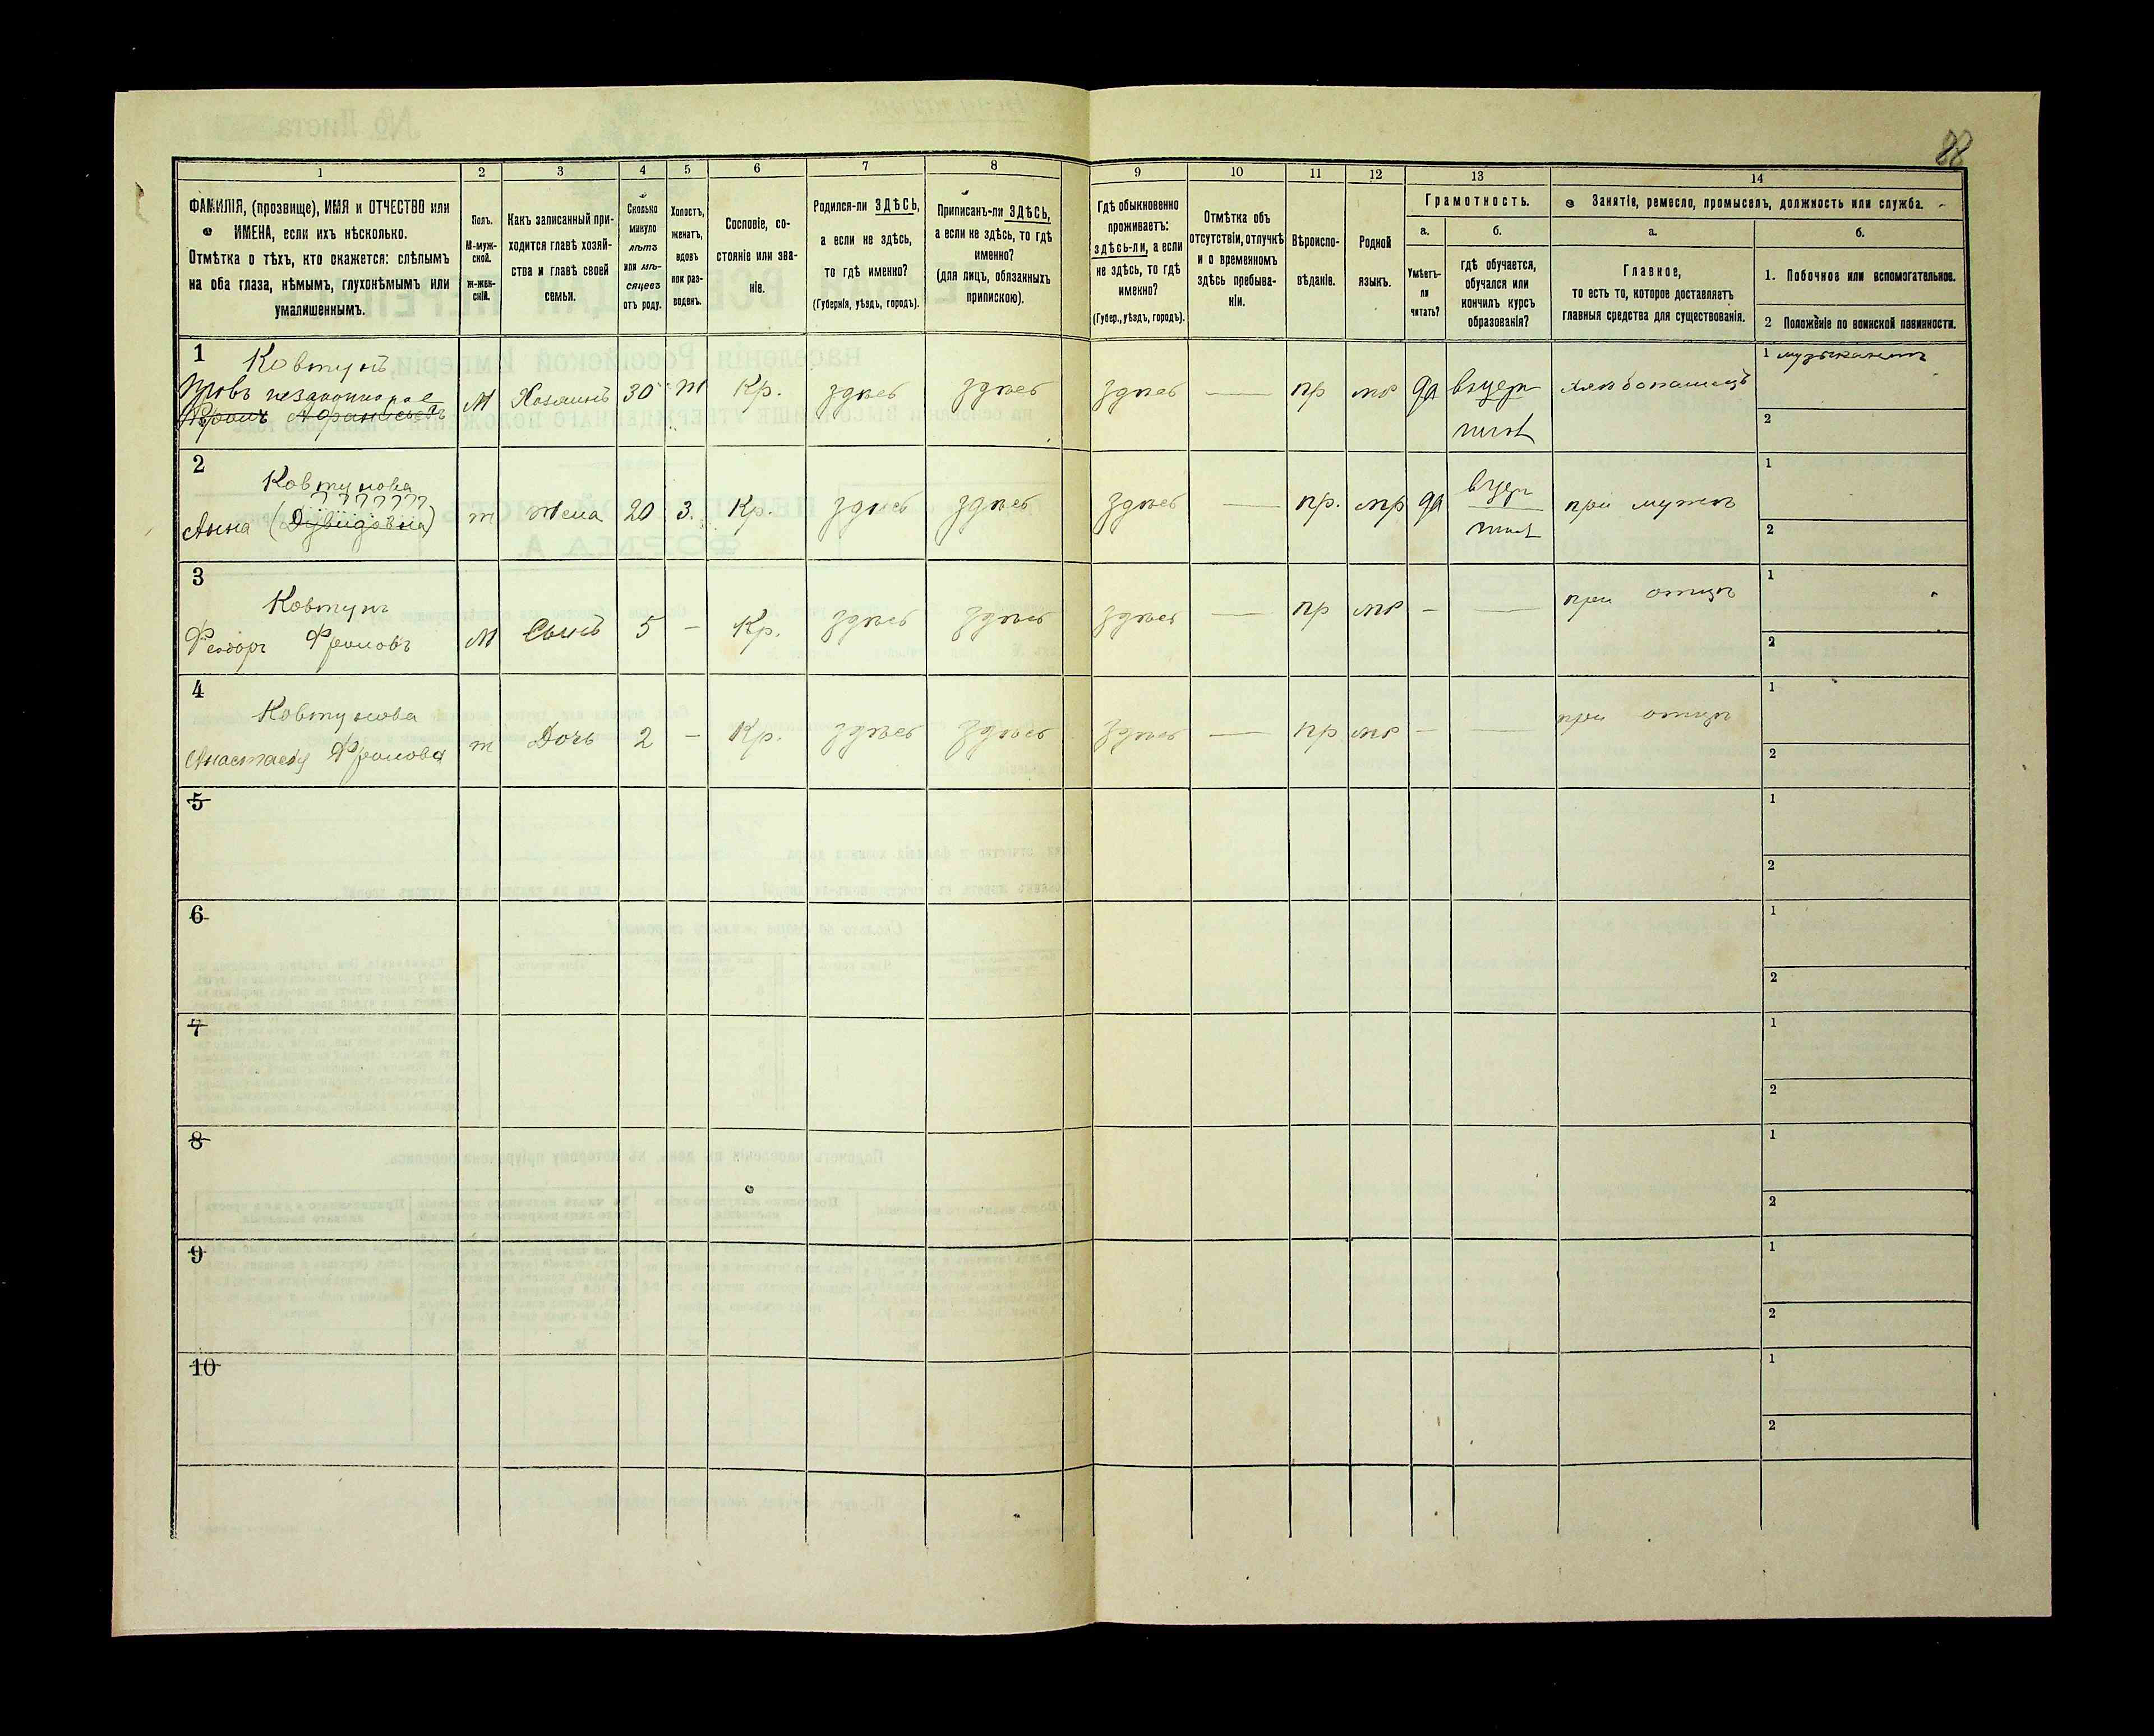 88
1
2
3
4
5
6
7
8
9
10
11
12
13
14
ФАМИЛІЯ, (прозвище), ИМЯ и ОТЧЕСТВО или
ИМЕНА, если ихъ нѣсколько.
Отмѣтка о тѣхъ, кто окажется: слѣпымъ
на оба глаза, нѣмымъ, глухонѣмымъ или
умалишеннымъ.
Полъ.
М-муж-
ской.
ж-жен-
скій.
Какъ записанный при-
ходится главѣ хозяй-
ства и главѣ своей
семьи.
Сколько
минуло
лѣтъ
или мѣ-
сяцевъ
отъ роду.
Холостъ,
женатъ,
вдовъ
или раз-
веденъ.
Сословіе, со-
стояніе или зва-
ніе.
Родился-ли ЗДѢСЬ,
а если не здѣсь,
то гдѣ именно?
(Губернія, уѣздъ, городъ).
Приписанъ-ли ЗДѢСЬ,
а если не здѣсь, то гдѣ
именно?
(для лицъ, обязанныхъ
припискою).
Гдѣ обыкновенно
проживаетъ:
здѣсь-ли, а если
не здѣсь, то гдѣ
именно?
(Губер., уѣздъ, городъ).
Отмѣтка объ
отсутствіи, отлучкѣ
и о временномъ
здѣсь пребыва-
ніи.
Вѣроиспо-
вѣданіе.
Родной
языкъ.
Грамотность.
а.
Умѣетъ-
ли
читать?
б.
гдѣ обучается,
обучался или
кончилъ курсъ
образованія?
Занятія, ремесло, промыселъ, должность или служба.
а.
Главное,
то есть то, которое доставляетъ
главныя средства для существованія.
б.
1. Побочное или вспомогательное.
2 Положеніе по воинской повинности.
1
Ковтунъ
Афанасьевъ
М
Хозяинъ
30
Кр.
здѣсь
здѣсь
здѣсь
—
пр
мр
да
хлебопашецъ
1 музыкантъ
2
2
Ковтунова
Анна (Дувидовна)
ж
Жена
20
З.
Кр.
здѣсь
здѣсь
здѣсь
—
пр.
мр
да
при мужѣ
1
2
3
Ковтунъ
Федоръ Фроловъ
М
Сынъ
5
-
Кр.
здѣсь
здѣсь
здѣсь
—
пр
мр
-
—
при отцѣ
1
2
4
Ковтунова
Анастасія Фролова
ж
Дочь
2
-
Кр.
здѣсь
здѣсь
здѣсь
—
пр
мр
-
—
при отцѣ
1
2
5
1
2
6
1
2
7
1
2
8
1
2
9
1
2
10
1
2